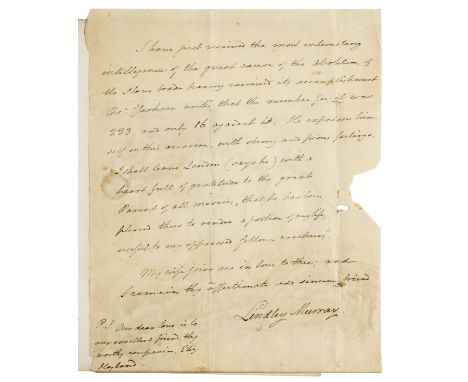 I have just received the most interesting
intelligence of the great cause of the Abolition of
the Slave trade having received its accomplishment
Thos Clarkson writes that the number for it was
283 and only 16 against it. He expresses him-
self on this occasion, with strong and pious feelings.
"I shall leave London (says he) with a
heart full of gratitude to the great
Parent of all mercies, that he has been
pleased thus to render a portion of my life,
useful to my oppressed fellow creatures"
My wife joins me in love to thee; and
I remain thy affectionate and sincere friend
Lindley Murray
P.S. Our dear love is to
our excellent friend, thy
worthy companion, Eliz.
Hoyland.